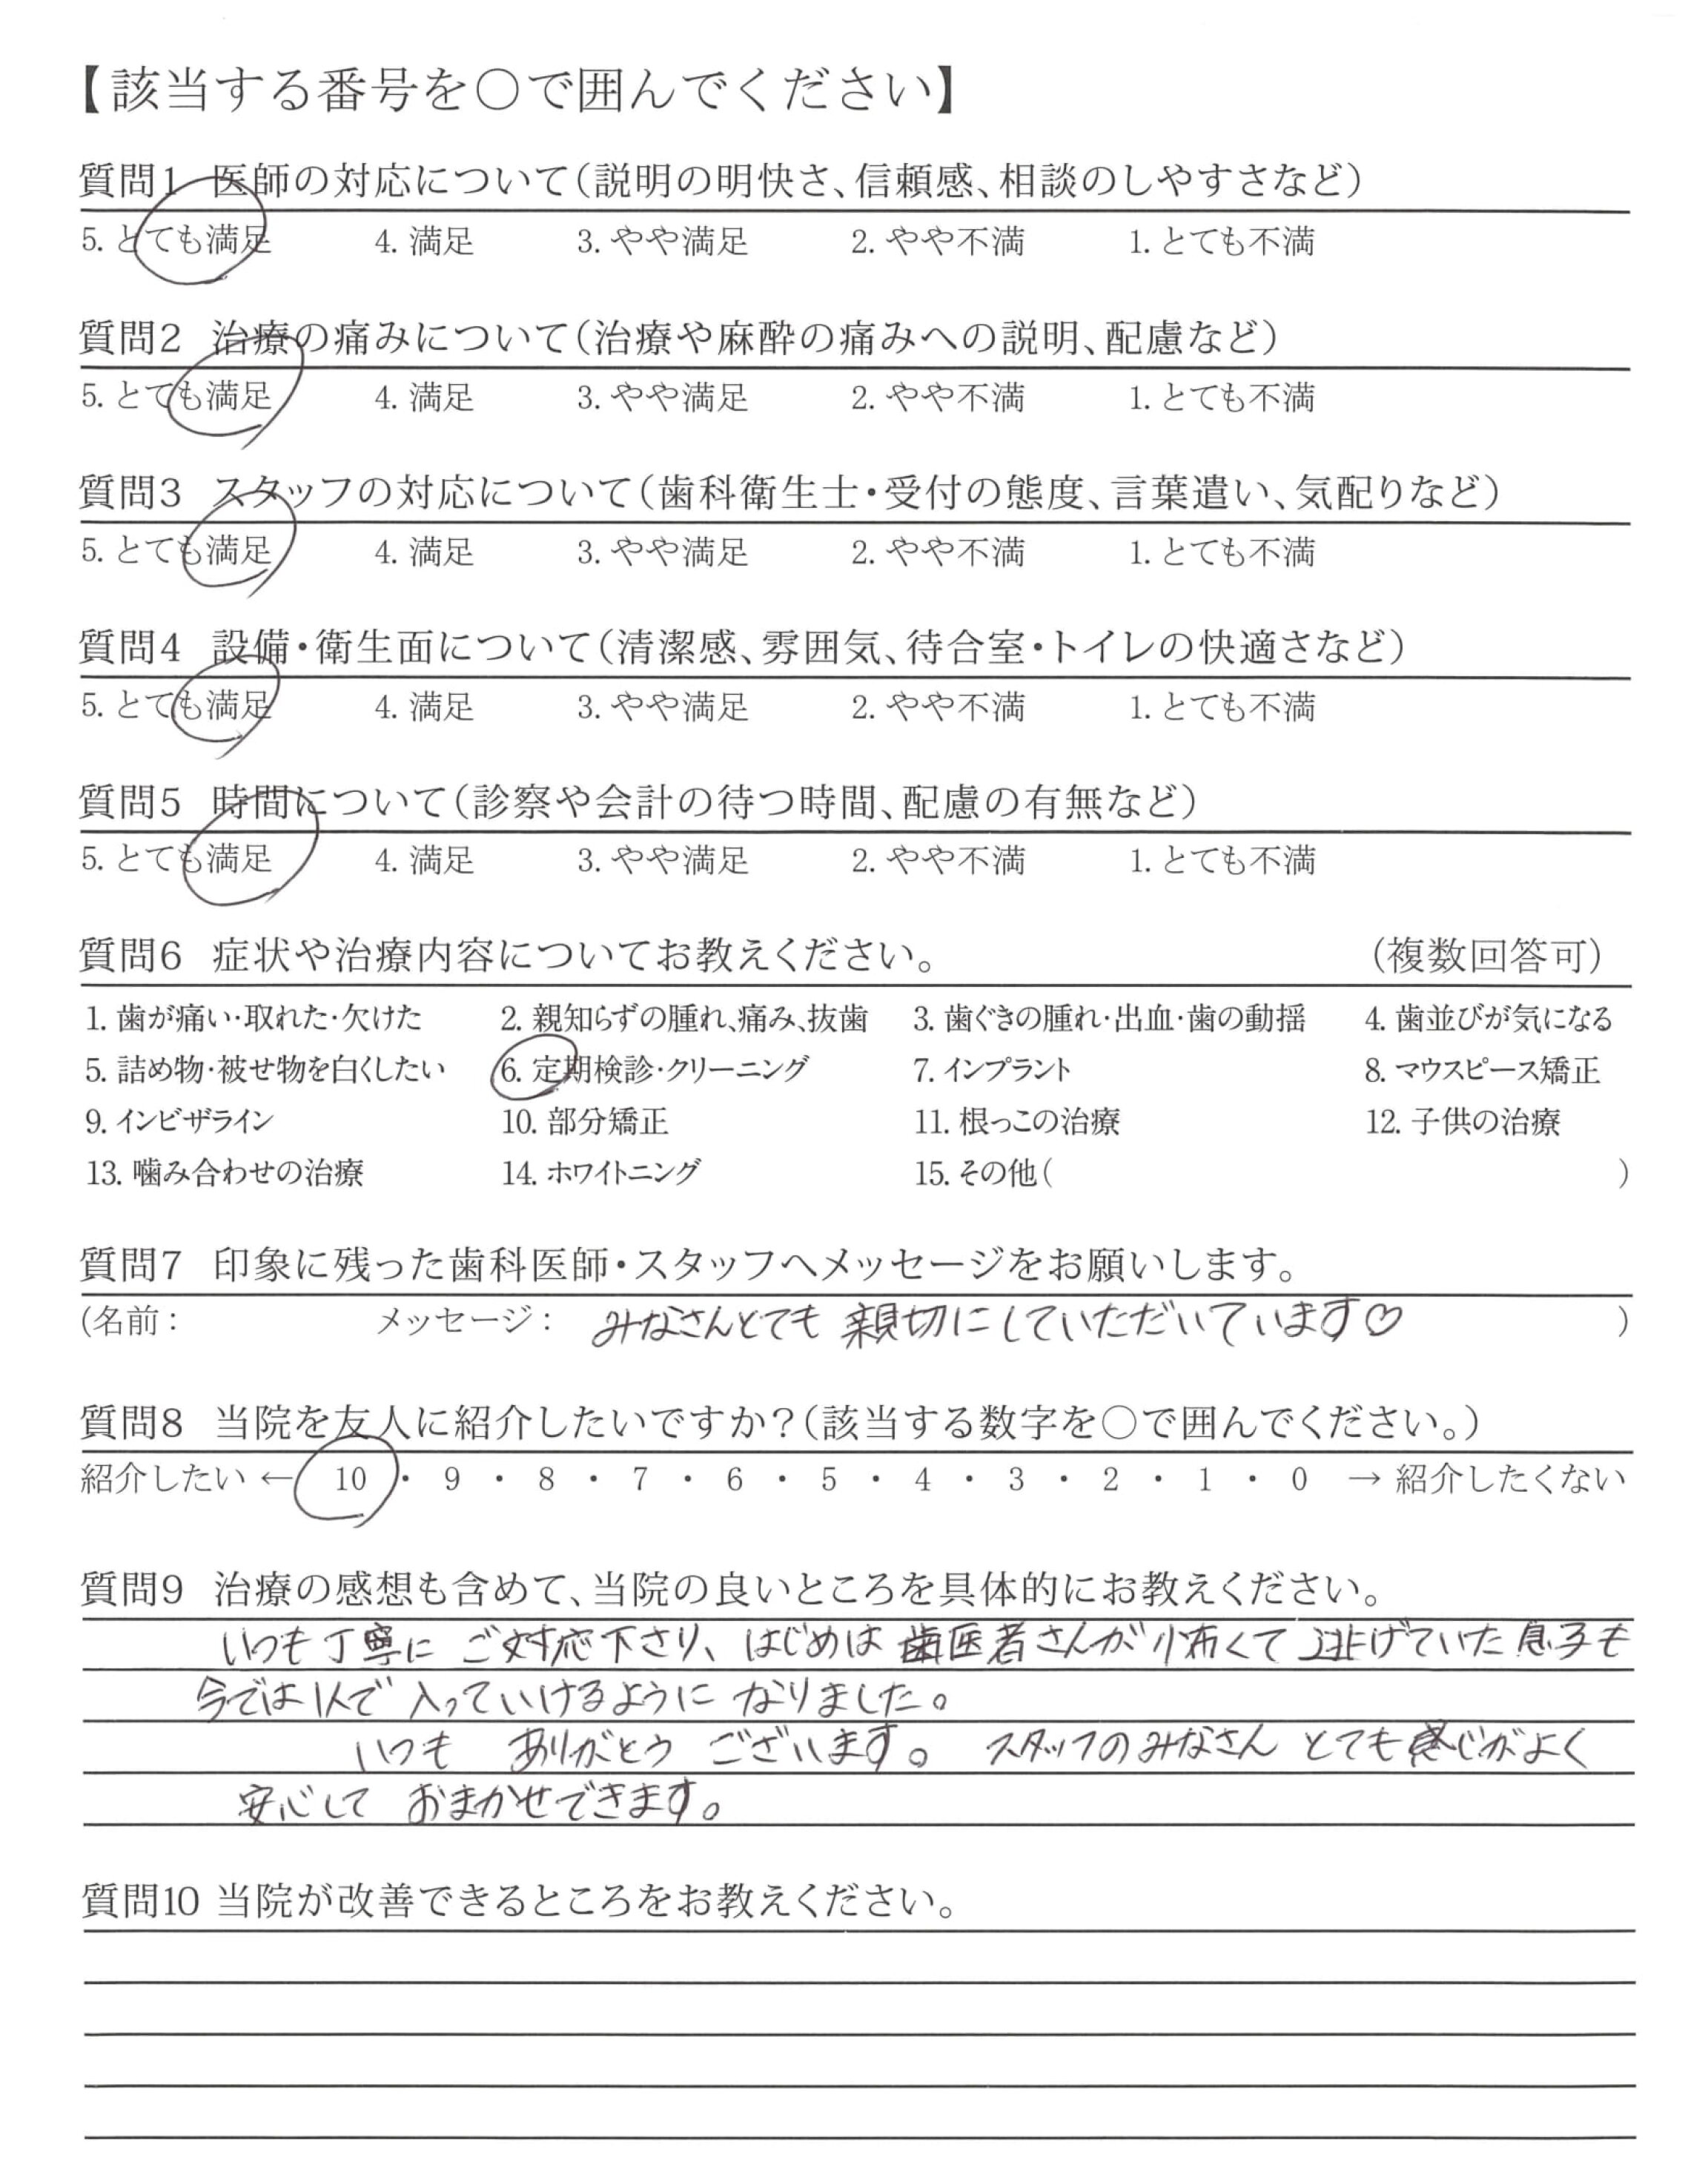 【該当する番号を○で囲んでください】
質問1 医師の対応について(説明の明快さ、信頼感、相談のしやすさなど)
5. とても満足 4. 満足 3. やや満足 2. やや不満 1. とても不満
質問2 治療の痛みについて(治療や麻酔の痛みへの説明、配慮など)
5. とても満足 4. 満足 3. やや満足 2. やや不満 1. とても不満
質問3 スタッフの対応について(歯科衛生士・受付の態度、言葉遣い、気配りなど)
5. とても満足 4. 満足 3. やや満足 2. やや不満 1. とても不満
質問4 設備・衛生面について(清潔感、雰囲気、待合室・トイレの快適さなど)
5. とても満足 4. 満足 3. やや満足 2. やや不満 1. とても不満
質問5 時間について(診察や会計の待つ時間、配慮の有無など)
5. とても満足 4. 満足 3. やや満足 2. やや不満 1. とても不満
質問6 症状や治療内容についてお教えください。 (複数回答可)
1. 歯が痛い・取れた・欠けた 2. 親知らずの腫れ、痛み、抜歯 3. 歯ぐきの腫れ・出血・歯の動揺 4. 歯並びが気になる
5. 詰め物・被せ物を白くしたい 6. 定期検診・クリーニング 7. インプラント 8. マウスピース矯正
9. インビザライン 10. 部分矯正 11. 根っこの治療 12. 子供の治療
13. 噛み合わせの治療 14. ホワイトニング 15. その他( )
質問7 印象に残った歯科医師・スタッフへメッセージをお願いします。
(名前: メッセージ: みなさんとても 親切にしていただいています♡ )
質問8 当院を友人に紹介したいですか?(該当する数字を○で囲んでください。)
紹介したい ← 10 ・ 9 ・ 8 ・ 7 ・ 6 ・ 5 ・ 4 ・ 3 ・ 2 ・ 1 ・ 0 → 紹介したくない
質問9 治療の感想も含めて、当院の良いところを具体的にお教えください。
いつも丁寧に ご対応下さり、はじめは 歯医者さんが怖くて 逃げていた息子も
今では1人で 入っていけるように なりました。
いつも ありがとう ございます。 スタッフのみなさん とても感じがよく
安心して おまかせできます。
質問10 当院が改善できるところをお教えください。